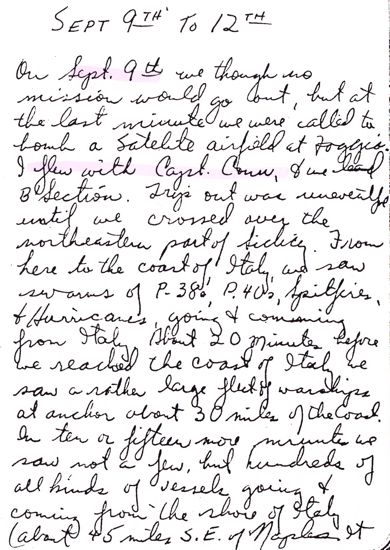 SEPT 9TH TO 12TH
On Sept. 9th we though no
mission would go out, but at
the last minute we were called to
bomb a Satelite airfield at Foggia.
I flew with Capt. Conn, & we lead
B Section. Trip out was uneventful
until we crossed over the
northeastern part of Sicily. From
here to the coast of Italy, we saw
swarms of P-38s, P.40s, Spitfires,
& Hurricanes, going & comming
from Italy. About 20 minutes before
we reached the coast of Italy we
saw a rather large fleet of warships
at anchor about 30 miles of the coast.
In ten or fifteen more minutes we
saw not a few, but hundreds of
all kinds of vessels going &
coming from the shore of Italy
(about 45 miles S.E. of Naples. It